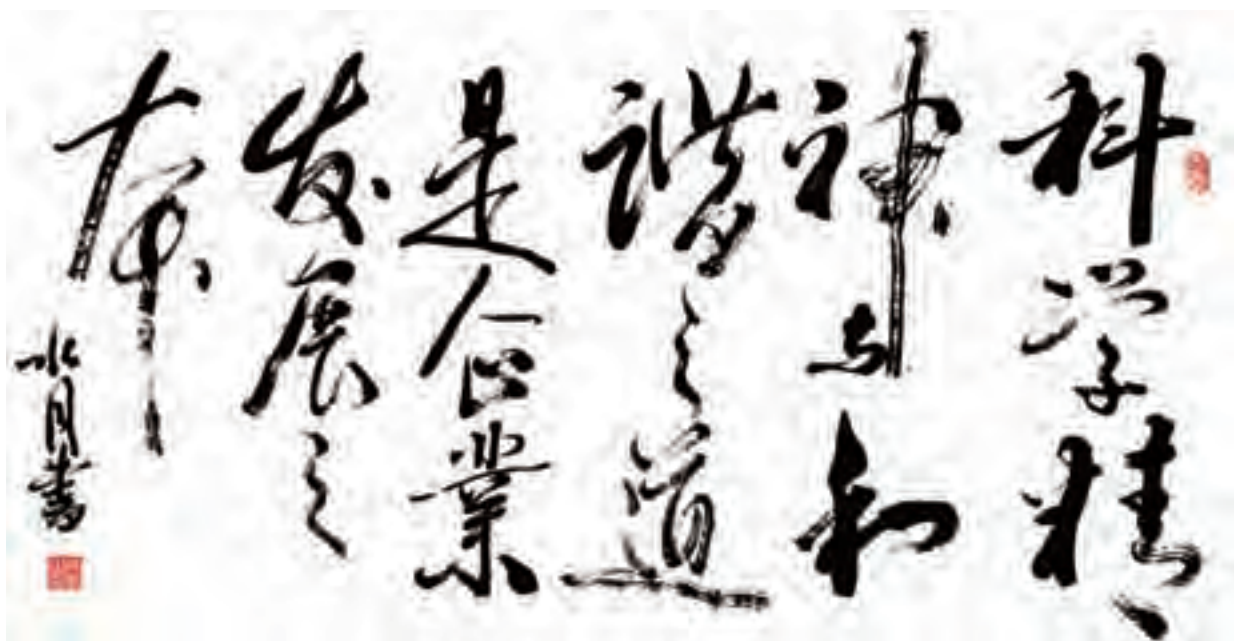 科学精
神与和
谐之道
是企業
发展之
本
水月書